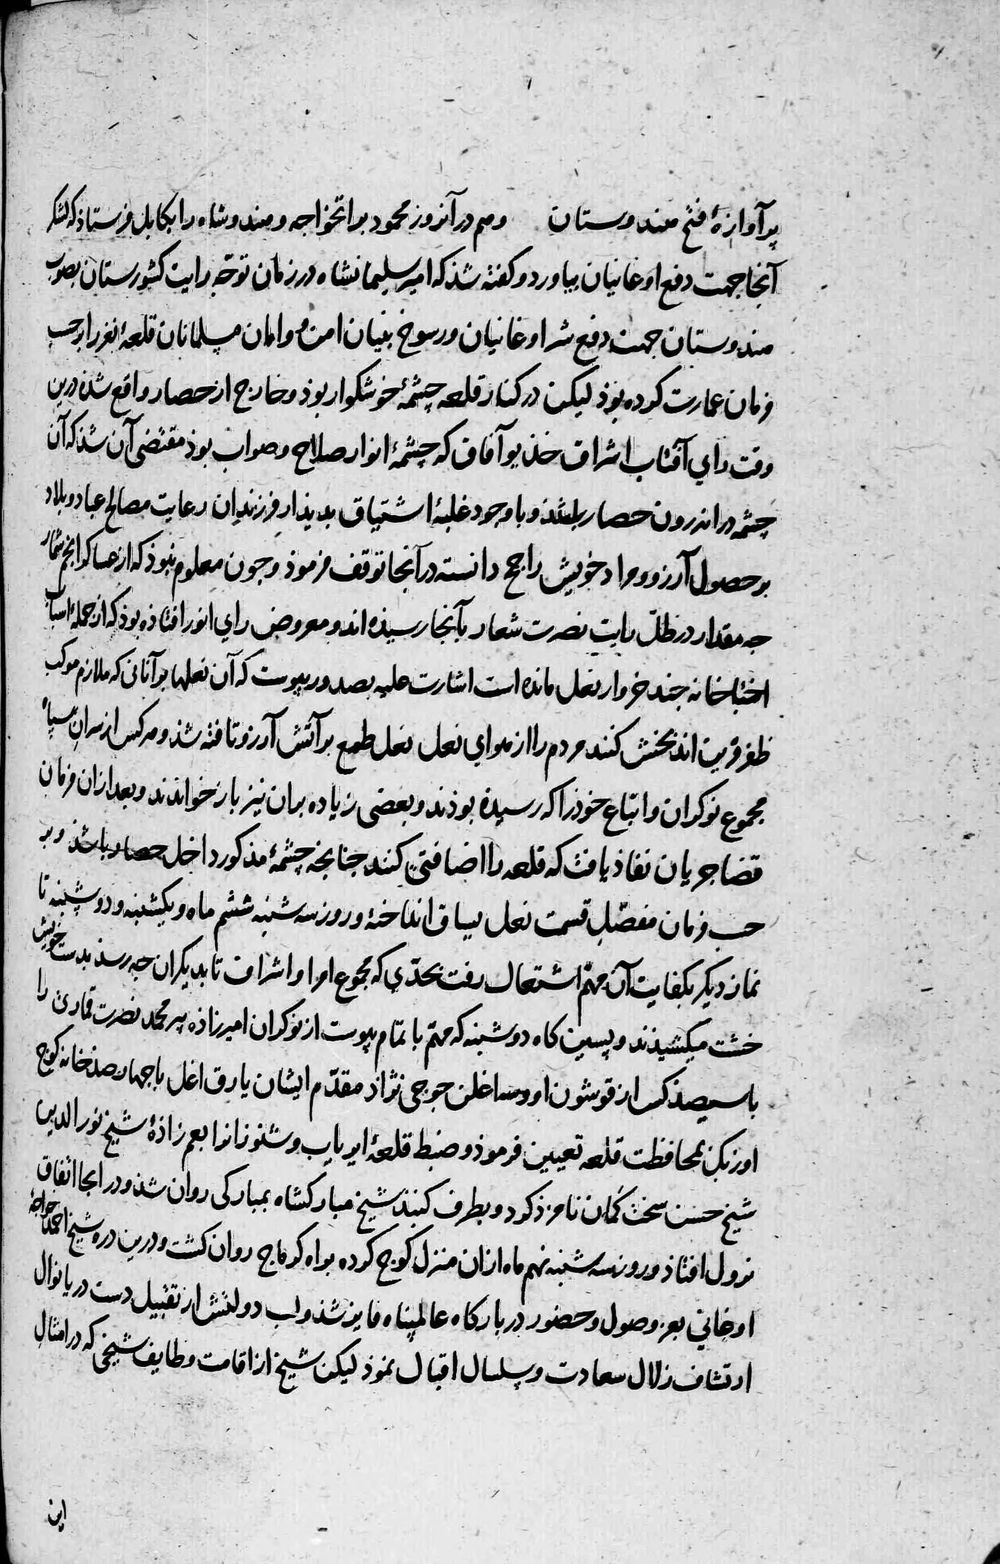 پر آوازهٔ فتح هندوستان وهم در آنروز محمود براتخواجه و هندوشاه را بکابل فرستاذ که لشکر
آنجا جهت دفع اوغانیان بیاورد و گفته شذ که امیر سلیمانشاه در زمان توجه رایت کشورستان بصوب
هندوستان جهت دفع شر اوغانیان و رسوخ بنیان امن و امان مسلمانان قلعهٔ نغر را برحسب
فرمان عمارت کرده بوذ لیکن در کنار قلعه چشمهٔ خوشکوار بوذ و خارج از حصار واقع شده درین
وقت رای آفتاب اشراق خذیو آفاق که چشمهٔ انوار صلاح و صواب بوذ مقتضی آن شذ که آن
چشمه در اندرون حصار باشذ و با وجود غلبهٔ اشتیاق بدیذار فرزندان رعایت مصالح عباد و بلاد
بر حصول آرزو و مراد خویش راجح دانسته در آنجا توقف فرموذ و چون معلوم نبوذ که از عساکر انجم شمار
چه مقدار در ظل رایت نصرت شعار بآنجا رسیذه اند و معروض رای انور افتاذه بوذ که از جملهٔ اسباب
اختاخانه چند خروار نعل مانده است اشارت علیه بصدور پیوست که آن نعلها بر آنانی که ملازم موکب
ظفر قرین اند بخش کنند مردم را از هوای نعل نعل طمع بر آتش آرزو تافته شذ و هر کس از سران سپاه
مجموع نوکران و اتباع خوذ را که رسیذه بوذند و بعضی زیاده بران نیز باز خواندند و بعد ازان فرمان
قضا جریان نفاذ یافت که قلعه را اضافتی کنند چنانچه چشمهٔ مذکور داخل حصار باشذ و بر
حسب فرمان مفصل قسمت نعل یساق انداخته و روز سه شنبه ششم ماه و یکشنبه و دوشنبه تا
نماز دیگر بکفایت آن مهم اشتعال رفت بحدی که مجموع امرا و اشراف تا بدیگران چه رسذ بدست خویش
خشت میکشیذند و پسین گاه دوشنبه که مهم باتمام پیوست از نوکران امیرزاذه پیرمحمد نصرت قماری را
با سیصذ کس از قوشون او و سه اغلن جوجی نژاد مقدم ایشان یارق اغل با چهار صذ خانه کوچ
اوزبک بمحافظت قلعه تعیین فرموذ و ضبط قلعهٔ ایریاب و شنوزان را بعم زاذهٔ شیخ نور الدین
شیخ حسن سخت کمان نامزذ کرد و بطرف کنبذ شیخ مبارکشاه بمبارکی روان شذ و در آنجا اتفاق
نزول افتاذ و روز سه شنبه نهم ماه ازان منزل کوچ کرده براه کرماج روان گشت و درین دره شیخ احمد خواجهٔ
اوغانی بعز وصول و حضور در بارگاه عالمپناه فایز شذ و لب دولتش از تقبیل دست دریا نوال
ارتشاف زلال سعادت و سلسال اقبال نموذ لیکن شیخ از اقامت وظایف شیخی که در امثال
این